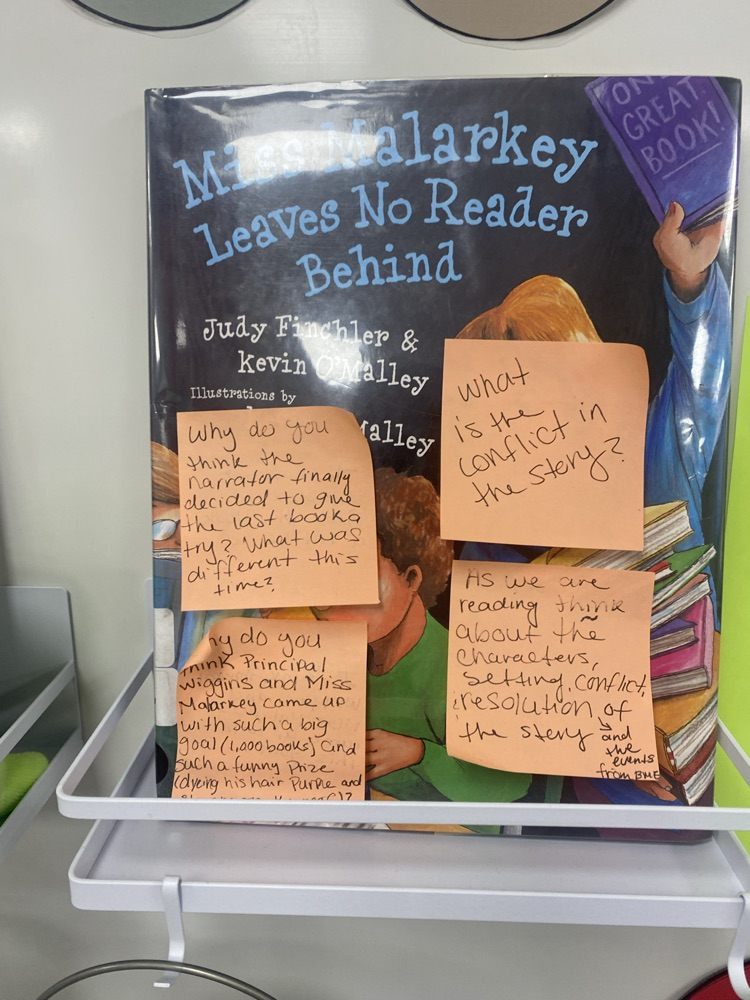 ONE
GREAT
BOOK!
Miss Malarkey
Leaves No Reader
Behind
Judy Finchler &
Kevin O'Malley
Illustrations by
Malley
What
is the
conflict in
the story?
Why do you
think the
narrator finally
decided to give
the last book a
try? What was
different this
time?
As we are
reading think
about the
characters,
setting, conflict,
resolution of
the story
and
the
events
from BME
Why do you
think Principal
Wiggins and Miss
Malarkey came up
with such a big
goal (1,000 books) and
such a funny prize
(dyeing his hair Purple and